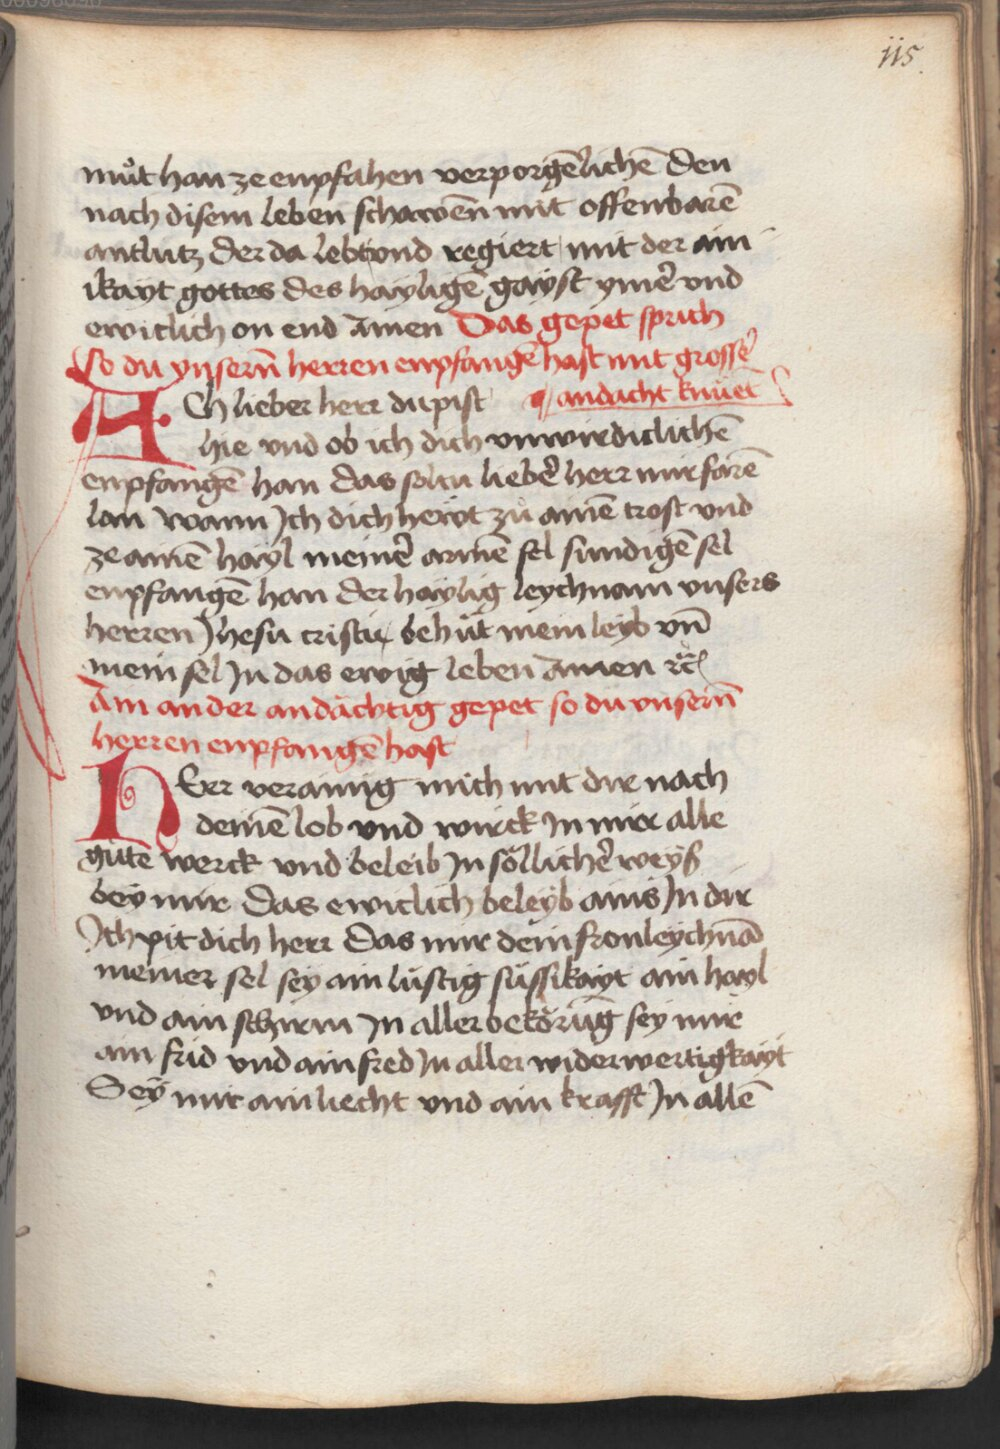 115
mu̇t han ze enpfahen verporgēlichē den
nach disem leben schawēn mit offenbarē
antlutz der da lebt vnd regiert mit der ain
ikayt gottes des hayligē gayst ymer̄ vnd
ewiclich on end Amen Das gepet sprich
So du vnsern̄ herren enpfangē hast mit grosser̄
andacht knüet
ACh lieber herr du pist
hie vnd ob ich dich vnwirdiclichē
enpfangē han das soltu lieber̄ herr mir farē
lan wann Jch dich heẅt zů ainē trost vnd
ze ainē hayl meiner̄ armē sel sundigē sel
enpfangē han der haylig leychnam vnsers
herren Jhesu cristi behüt mein leyb vn̄
mein sel Jn das ewig leben Amen ꝛc̄
Ain ander andächtig gepet so du vnsern̄
herren enpfangē hast
HErr verainig mich mit dir nach
deinē lob vnd wirck Jn mir alle
gutē werck vnd beleib Jn söllicher̄ weyß
bey mir Das ewiclich beleyb ains Jn dir
Jch pit dich herr Das mir dein fronleychnā
meiner sel sey ain lüstig süssikayt ain hayl
vnd ain schirm Jn aller bekörūg sey mir
ain frid vnd ain fred Jn aller widerwertigkayt
Seÿ mir ain liecht vnd ain krafft Jn allē